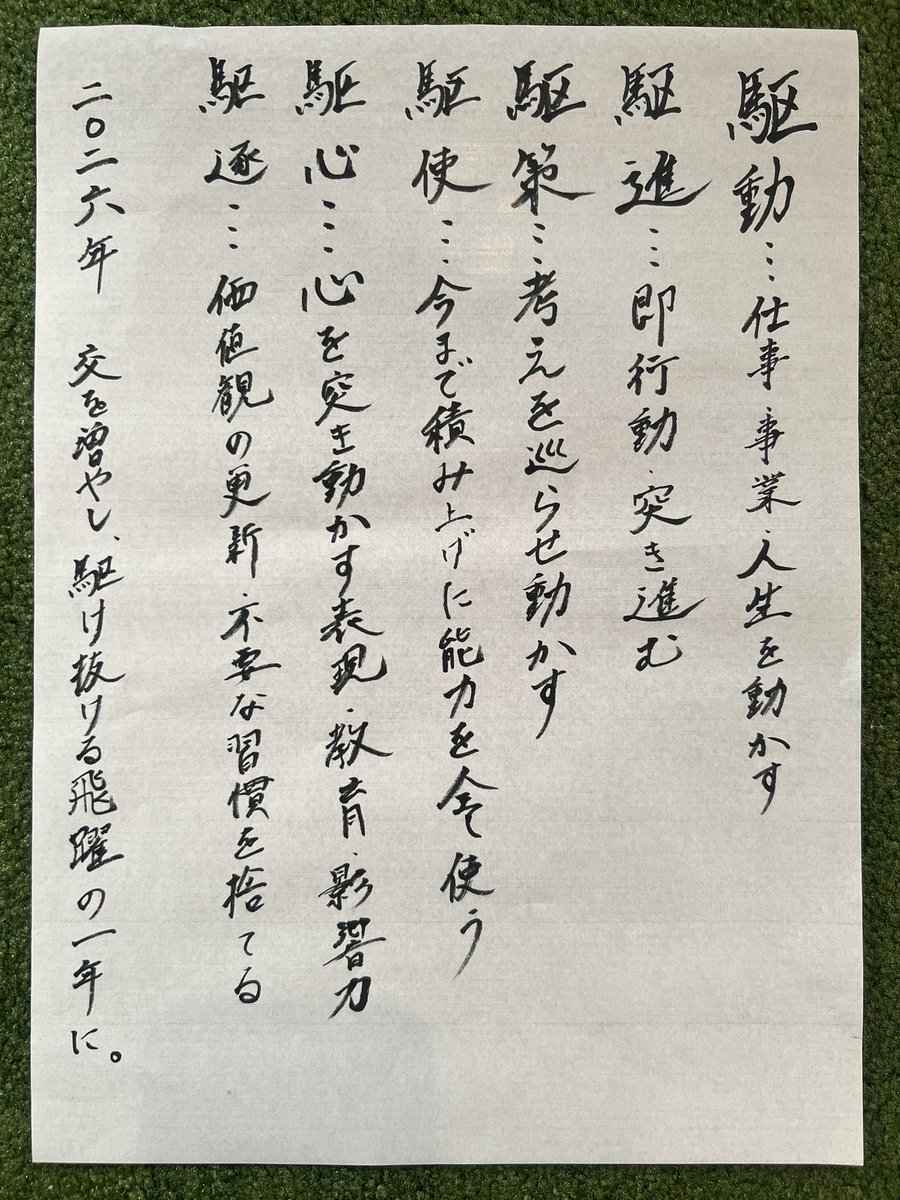 駆動…仕事・事業・人生を動かす
駆進…即行動・突き進む
駆策…考えを巡らせ動かす
駆使…今まで積み上げに能力を全て使う
駆心…心を突き動かす表現・教育・影響力
駆逐…価値観の更新・不要な習慣を捨てる
二〇二六年 交を増やし、駆け抜ける飛躍の一年に。